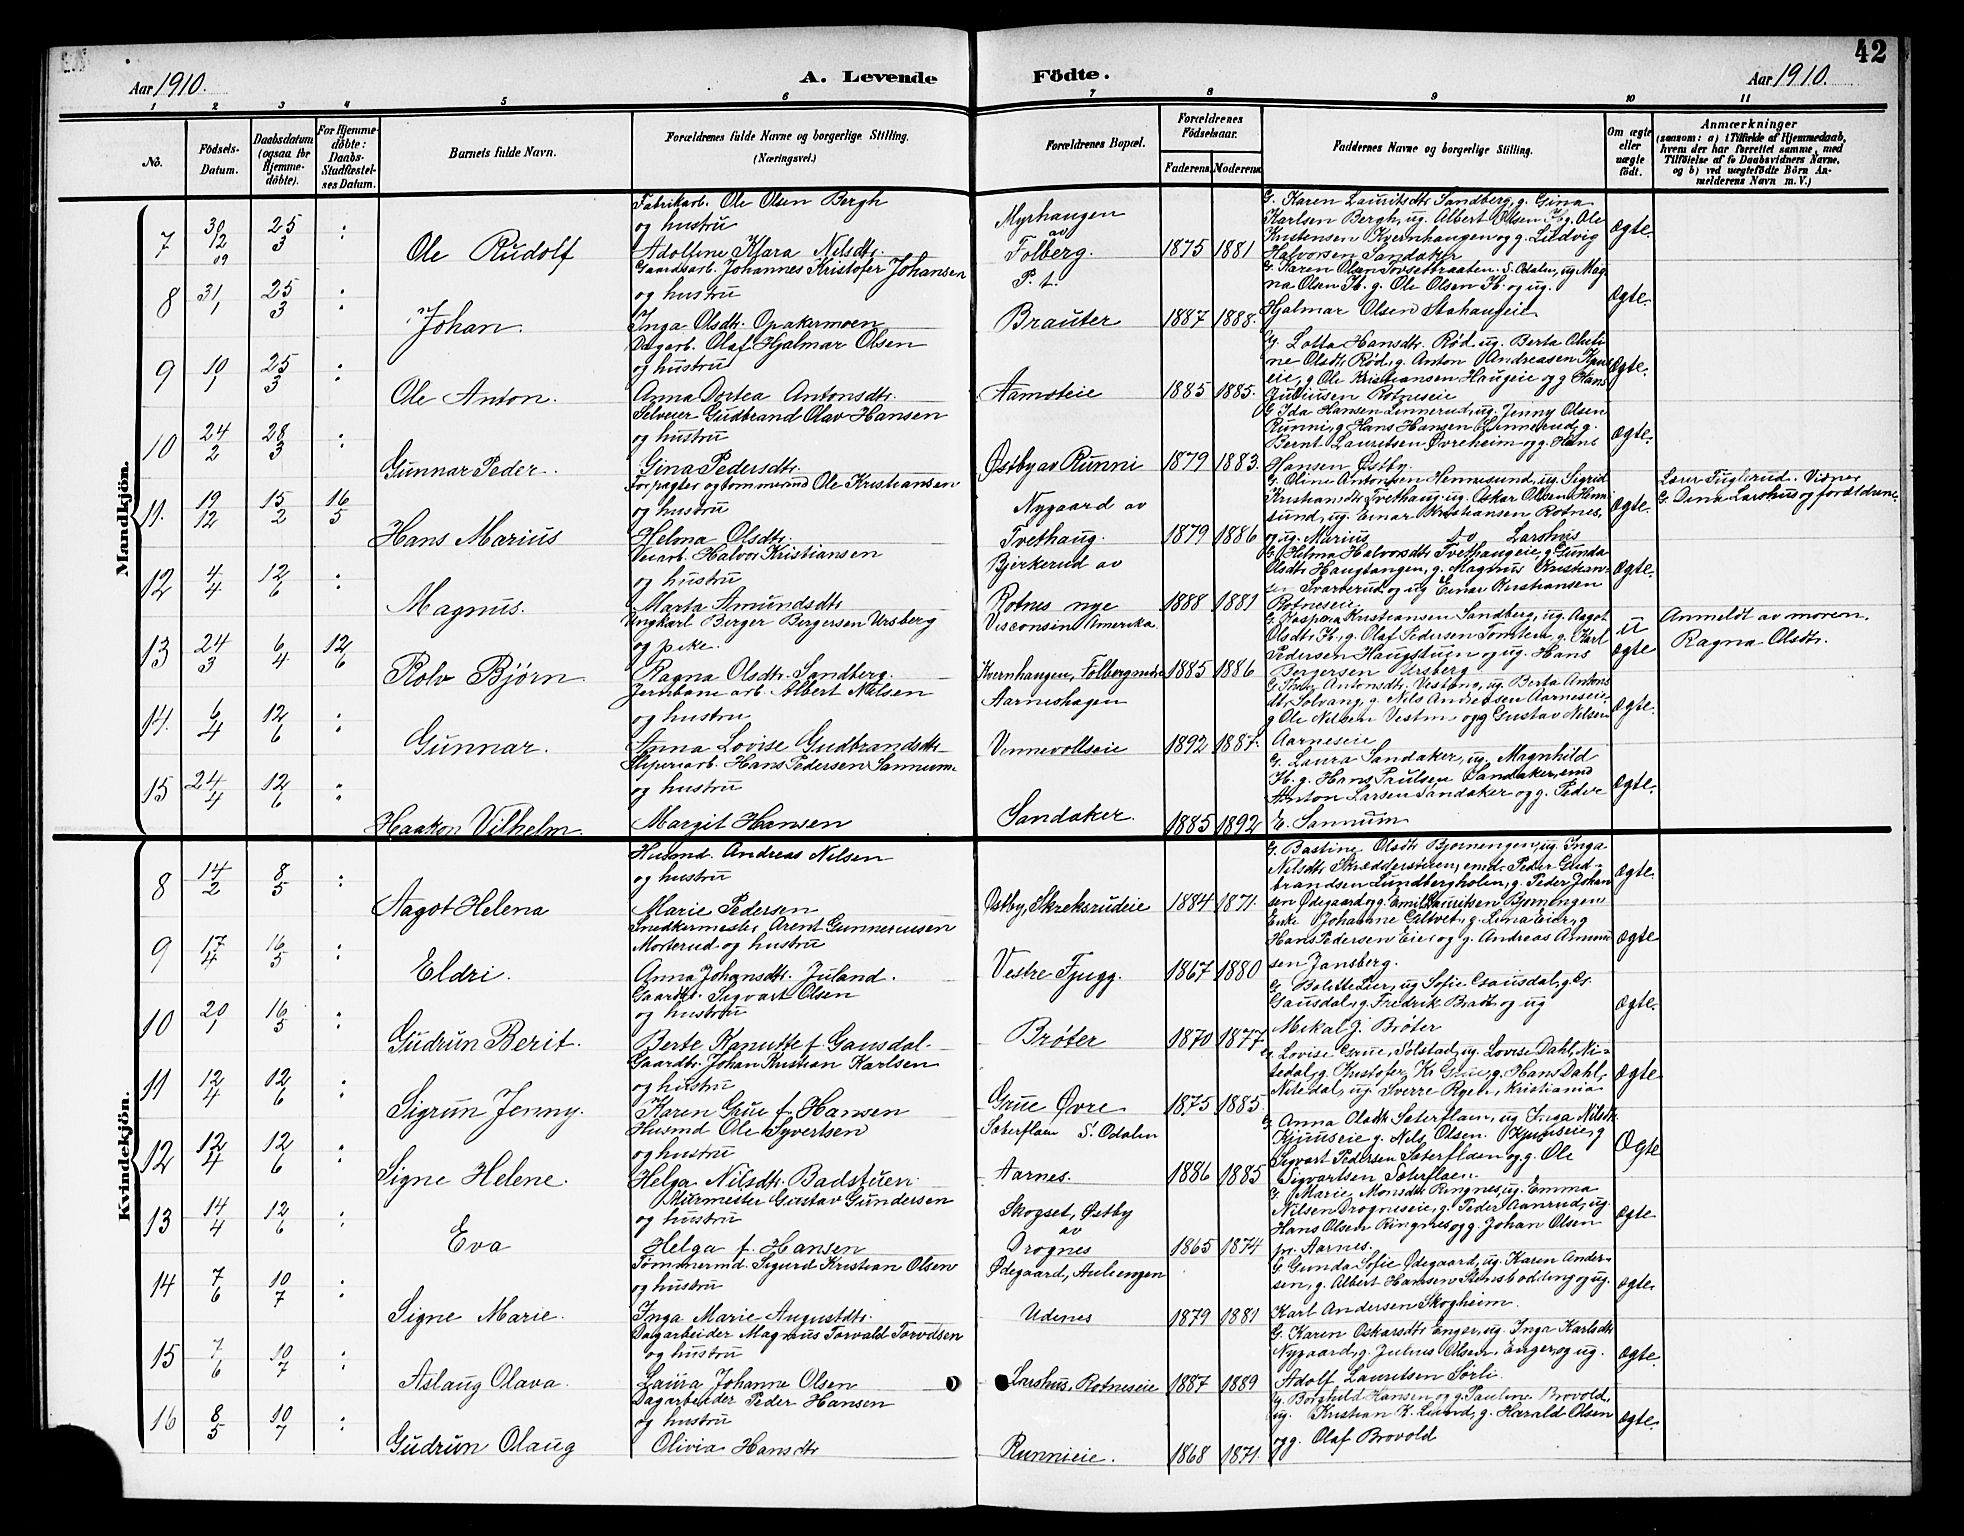 42
Aar 1910.
A. Levende Födte.
Aar 1910.
1 2 3 4 5 6 7 8 9 10 11
No.
Födsels-Datum.
Daabsdatum (ogsaa for Hjemme-döbte).
For Hjemme-döbte: Daabs-Stadfæstel-ses Datum.
Barnets fulde Navn.
Forældrenes fulde Navne og borgerlige Stilling. (Næringsvei.)
Forældrenes Bopæl.
Forældrenes Födselsaar.
Faderens Moderens
Faddernes Navne og borgerlige Stilling.
Om ægte eller uægte födt.
Anmærkninger
(saasom: a) i Tilfælde af Hjemmedaab,
hvem der har forrettet samme, med
Tilföielse af to Daabsvidners Navne,
og b) ved uægtefödte Börn An-
melderens Navn m. V.)
Mandkjön.
7 30/12 09 25/3 : Ole Rudolf
Fabrikarb. Ole Olsen Bergh
og hustru
Adolfine Klara Nilsdtr.
Myrhaugen
av
Folberg.
1875 1881
G. Karen Lauritsdtr Sandberg, g. Gina
Karlsen Bergh, ug. Albert Olsen H., g. Ole
Kristensen Kvernhaugen og g. Ludvig
Halvorsen Sandaker
Ægte.
8 31/1 25/3 : Johan.
Gaardsarb. Johannes Kristofer Johansen
og hustru
Inga Olsdtr. Opakermoen
P. t.
Brauter
1887 1888.
G. Karen Olsen Fossetbraaten. S. Odalen, ug Mag
na Olsen H. g. Ole Olsen H. og ug.
Hjalmar Olsen Stahaugeie
Ægte.
9 10/1 25/3 : Ole Anton.
Dagarb. Olaf Hjalmar Olsen
og hustru
Anna Dortea Antonsdtr.
Aamoteie
1885 1885.
G. Lotta Hansdtr. Rød ug. Berta Oluti
ne Olsdtr Rød, g. Anton Andreasen
eie, g Ole Kristiansen Haugeie og g Hans
Juliusen Rotneseie
Ægte.
10 24/2 28/3 : Gunnar Peder.
Selveier Gudbrand Olav Hansen
og hustru
Gina Pedersdtr.
Østby av Runni
1879 1883.
G Ida Hansen Linnerud, ug. Jenny Olsen
Runni, g Hans Hansen Linnerud, g.
Bernt Lauritsen Øvreheim og g. Hans
Hansen Østby.
Ægte.
11. 19/12 15/2 16/5 Hans Marius
Forpagter og tømmermd Ole Kristiansen
og hustru
Helma Olsdtr.
Nygaard av
Tvethaug.
1879 1886
G. Oline Antonsen Hennesund, ug. Sigrid
Kristiansdtr Tvethaug. ug. Oskar Olsen Henni
sund, ug. Einar Kristiansen Rotnes,
og ug. Marius do Larshus
Ægte.
Lærer Fuglerud. Vidner
G. Dina Larshus og forældrene.
12 4/4 12/6 : Magnus.
Veiarb. Halvor Kristiansen
og hustru
Marta Amundsdtr
Bjerkerud av
Rotnes nye
1888 1881
G. Helma Halvorsdtr Tvethaugeie, g. Gunda
Olsdtr Haugtangen, g. Magnus Kristian-
sen Svarterud og ug Einar Kristiansen
Rotneseie
Ægte.
13 24/3 6/4 12/6 Rolv Bjørn
Ungkarl Birger Bergersen Ursberg
og pike.
Ragna Olsdtr. Sandberg.
Visconsin, Amerika.
Kvernhaugen, Folbergmdre
1885 1886
G. Kaspara Kristiansen Sandberg, ug. Aagot
Olsdtr H., g. Olaf Pedersen Tomten, g. Karl
Pedersen Haugstuen og ug. Hans
Bergersen Ursberg
u
ægte
Anmeldt av moren
Ragna Olsdtr.
14. 6/4 12/6 : Gunnar.
Jernbane arb. Albert Nilsen
og hustru
Anna Lovise Gudbrandsdtr
Aarneshagen
Vennevollseie
1892 1887.
G. Antonsdtr. Vestmo, ug. Berta Antons
dtr Solvang, g. Nils Andreasen Aarneseie,
g Ole Nilsen Vestm og g Gustav Nilsen
Aarneseie
Ægte.
15 24/4 12/6 : Haakon Vilhelm.
Sliperiarb. Hans Pedersen Sannum
og hustru
Margit Hansen
Sandaker.
1885 1892
G. Laura Sandaker, ug. Magnhild
H. g. Hans Paulsen Sandaker, emd
Anton Larsen Sandaker og g. Peder
E. Sannum
Ægte.
Kvindekjön.
8 14/2 8/5 : Aagot Helena
Husmd. Andreas Nilsen
og hustru
Marie Pedersen
Østby, Skreksrudeie
1884 1871.
G. Bastine Olsdtr Bjørnengen, ug Inga
Nilsdtr Skreddersveen, emd. Peder Gud-
brandsen Lundbergholen, g. Peder Johan
sen Ødegaard og g. Emil Lauritsen Bjørnengen
Ægte.
9 17/4 16/5 : Eldri.
Snedkermester Arent Gunneriussen
Morterud og hustru
Anna Johansdtr. Juland.
Vestre Fjugg.
1867 1880
Enke Johanne Gultvet, g. Lina Eier, g
Hans Pedersen Eier og g. Andreas Amund
sen Jansberg.
Ægte
10 20/1 16/5 : Gudrun Berit.
Gaardbr. Sigvart Olsen
og hustru
Berte Kanutte f. Gausdal
Brøter
1870 1877
G. Bolette Lier, ug Sofie Gausdal, g. Gr.
Gausdal, g. Fredrik Braat og ug
Mikal J. Brøter
Ægte.
11 12/4 12/6 : Sigrun Jenny.
Gaardbr. Johan Kristian Karlsen
og hustru
Karen Grue f. Hansen
Grue Øvre
1875 1885.
g. Lovise Grue, Solstad, ug. Lovise Dahl, Ni-
tedal, g. Kristofer Kr. Grue, g. Hans Dahl,
Nitedal, ug. Sverre Ryen, Kristiania
Ægte
12 12/4 12/6 : Signe Helene.
Husmd Ole Syvertsen
og hustru
Helga Nilsdtr. Badstuen
Saterflaen S. Odalen
Aarnes.
1886 1885
G. Anna Olsdtr Saterflaen, ug. Inga Nilsdtr
Kjuuseie g. Nils Olsen Kjuuseie, g
Sigvart Pedersen Saterflaen og g. Ole
Sigvartsen Saterflaen.
Ægte
13 14/4 12/6 : Eva
Murmester Gustav Gundersen
og hustru
Helga f. Hansen
Skogset, Østby
av
Drognes
1865 1874
G Marie Monsdtr Ringnes, ug. Emma
Nilsen Drogneseie, g. Peder Aanrud, ug
Hans Olsen Ringnes og g. Johan Olsen
pr. Aarnes.
Ægte
14 7/6 10/7 : Signe Marie.
Tømmermd. Sigurd Kristian Olsen
og hustru
Inga Marie Augustdtr.
Ødegaard, Auliengen
Udenes
1879 1881
G Gunda Sofie Ødegaard, ug. Karen Ander-
sen, g. Albert Hansen Stensbødding og ug.
Karl Andersen Skogheim.
Ægte.
15 7/6 10/7 : Aslaug Olava.
Dagarbeider Magnus Torvald Torvdsen
og hustru
Laura Johanne Olsen
Larshus, Rotneseie
1887 1889
G. Karen Oskarsdtr Enger, ug. Inga Karlsdtr
Nygaard, g. Julius Olsen, Enger, og ug.
Adolf Lauritsen Sørli
Ægte.
16 8/5 10/7 : Gudrun Olaug
Dagarbeider Peder Hansen
og hustru
Olivia Hansdtr
Runnieie.
1868 1871.
Ug. Borghild Hansen og g. Pauline Brovold,
ug. Kristian K. Lund, g. Harald Olsen
og g. Olaf Brovold
Ægte.